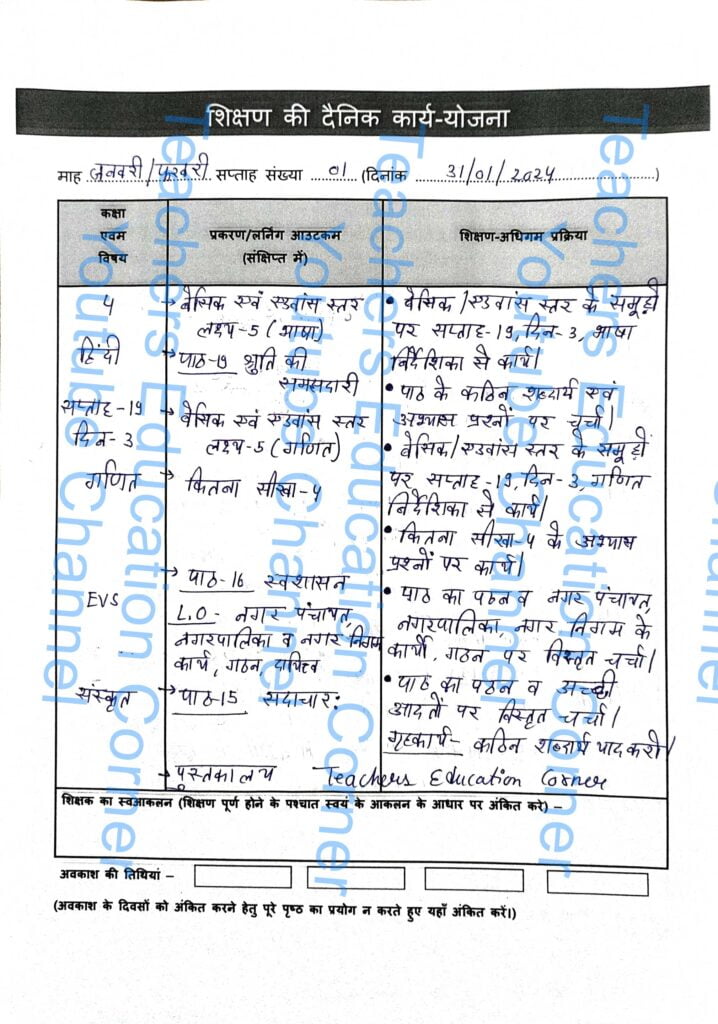 शिक्षण की दैनिक कार्य-योजना
माह जनवरी/फरवरी सप्ताह संख्या 01 (दिनांक 31/01/2024)
कक्षा
एवम
विषय
प्रकरण/लर्निंग आउटकम
(संक्षिप्त में)
शिक्षण-अधिगम प्रक्रिया
4
हिंदी
सप्ताह-19
दिन-3
गणित
EVS
संस्कृत
→ बेसिक एवं एडवांस स्तर
लक्ष्य-5 (भाषा)
→ पाठ-19 श्रुति की
समझदारी
→ बेसिक एवं एडवांस स्तर
लक्ष्य-5 (गणित)
→ कितना सीखा-4
→ पाठ-16 स्वशासन
L.O - नगर पंचायत,
नगरपालिका व नगर निगम
कार्य, गठन, दायित्व
→ पाठ-15 सदाचार:
→ पुस्तकालय
• बेसिक/एडवांस स्तर के समूहों
पर सप्ताह-19, दिन-3, भाषा
निर्देशिका से कार्य।
• पाठ के कठिन शब्दार्थ एवं
अभ्यास प्रश्नों पर चर्चा।
• बेसिक/एडवांस स्तर के समूहों
पर सप्ताह-19, दिन-3, गणित
निर्देशिका से कार्य।
• कितना सीखा-4 के अभ्यास
प्रश्नों पर कार्य।
• पाठ का पठन व नगर पंचायत,
नगरपालिका, नगर निगम के
कार्यों, गठन पर विस्तृत चर्चा।
• पाठ का पठन व अच्छी
आदतों पर विस्तृत चर्चा।
गृहकार्य- कठिन शब्दार्थ याद करो।
Teachers Education Corner
शिक्षक का स्वआकलन (शिक्षण पूर्ण होने के पश्चात स्वयं के आकलन के आधार पर अंकित करे) –
अवकाश की तिथियां –
(अवकाश के दिवसों को अंकित करने हेतु पूरे पृष्ठ का प्रयोग न करते हुए यहाँ अंकित करें।)
Teachers Education Corner
Youtube Channel
Teachers Education Corner
Youtube Channel
Teachers Education Corner
Youtube Channel